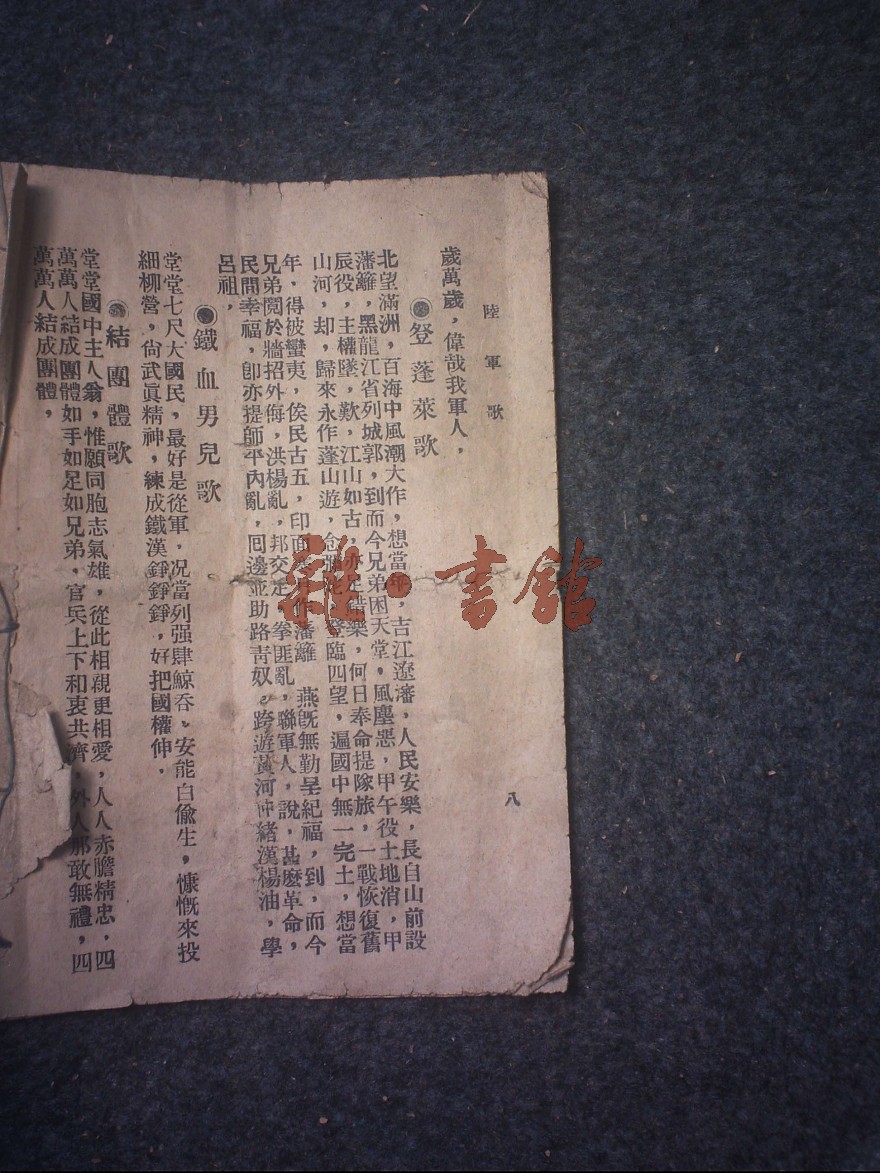 陸軍歌
八
歲萬歲，偉哉我軍人，
◉登蓬萊歌
北望滿洲，百海中風潮大作，想當年，吉江遼瀋，人民安樂，長白山前設
藩籬，黑龍江省列城郭，到而今兄弟困天堂，風塵惡，甲午役土地消，甲
辰役，主權墜，歎，江山如古，亦 樂，何日奉命提隊旅，一戰恢復舊
山河，却，歸來永作蓬山遊，念 登臨四望，遍國中無一完土，想當
年，得被蠻夷，俟民古五，印面 藩籬 燕旣無勤呈紀福，到，而今
兄弟鬩於牆招外侮，洪楊亂，邦交走，拳匪亂，聯軍人，說，甚麽革命，
民間幸福，卽亦提師平內亂，囘邊並助路靑奴，跨遊黃河仲緒漢楊油，學
呂祖，
◉鐵血男兒歌
堂堂七尺大國民，最好是從軍，况當列强肆鯨吞，安能白偸生，慷慨來投
細柳營，尙武眞精神，練成鐵漢錚錚錚，好把國權伸，
◉結團體歌
堂堂國中主人翁，惟願同胞志氣雄，從此相親更相愛，人人赤膽精忠，四
萬萬人結成團體如手如足如兄弟，官兵上下和衷共濟，外人那敢無禮，四
萬萬人結成團體，
雜·書館